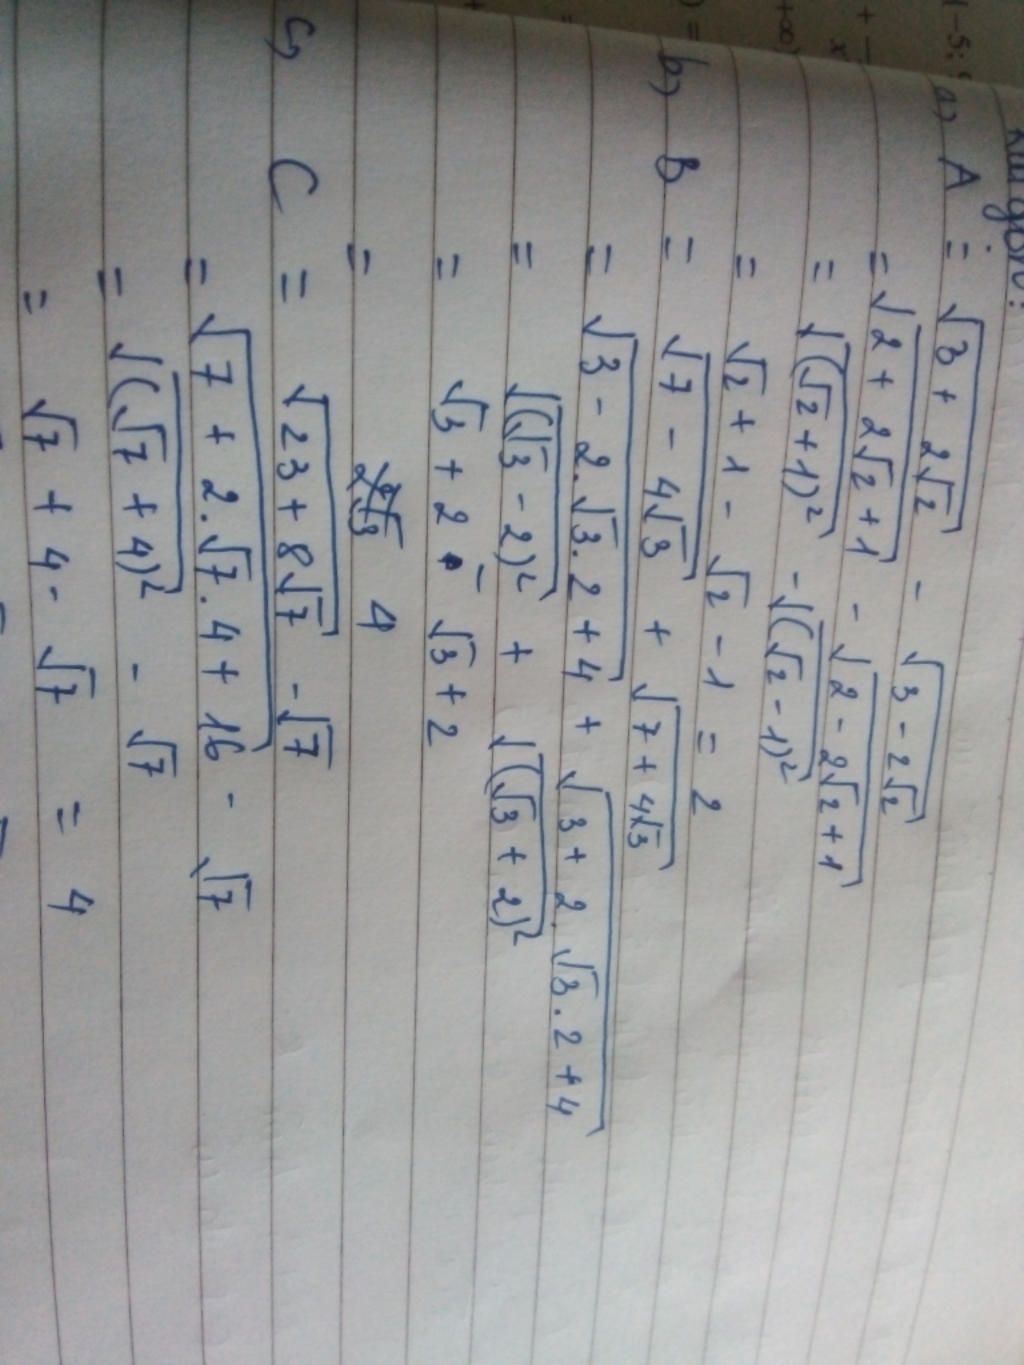 a) A = √(3 + 2√2) - √(3 - 2√2)
= √(2 + 2√2 + 1) - √(2 - 2√2 + 1)
= √((√2 + 1)²) - √((√2 - 1)²)
= √2 + 1 - √2 - 1 = 2
b) B = √(7 - 4√3) + √(7 + 4√3)
= √(3 - 2.√3.2 + 4) + √(3 + 2.√3.2 + 4)
= √((√3 - 2)²) + √((√3 + 2)²)
= √3 + 2 - √3 + 2
= 4
c) C = √(23 + 8√7) - √7
= √(7 + 2.√7.4 + 16) - √7
= √((√7 + 4)²) - √7
= √7 + 4 - √7 = 4